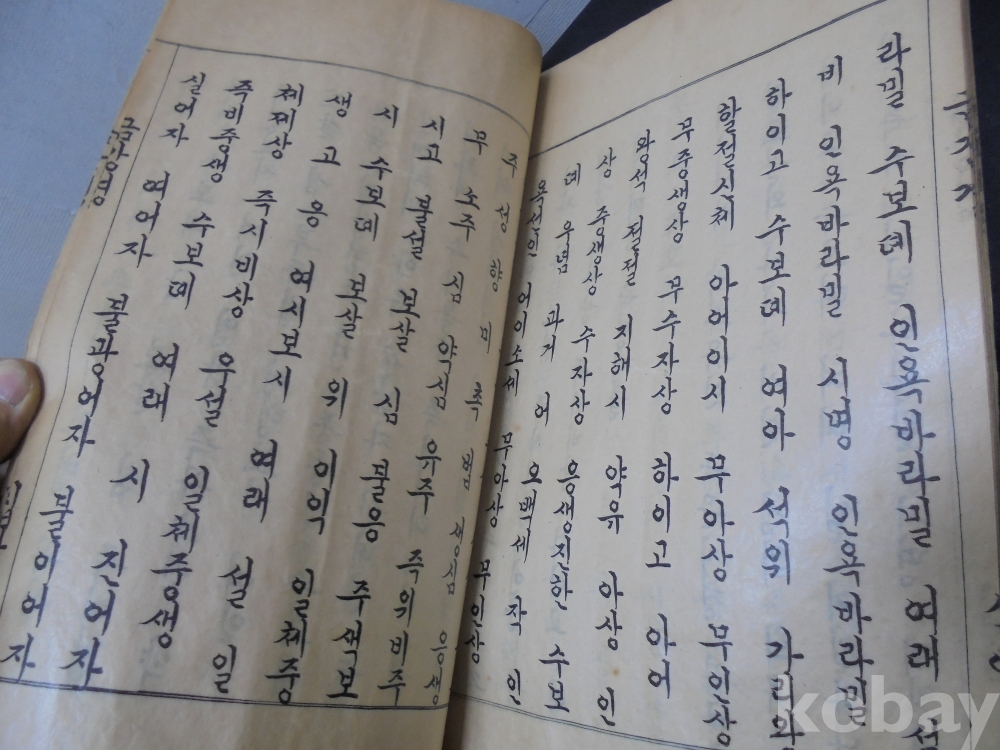 라밀 수보뎨 인욕바라밀 여래 설
비 인욕바라밀 시명 인욕바라밀
하이고 수보뎨 여아 석위 가리왕
할졀신체 아어이시 무아상 무인상
무중생상 무수자상 하이고 아어
왕석 졀졀 지해시 약유 아상 인
상 중생상 수자상 응생진한 수보
뎨 우념 과거 어 오백세 작 인
욕선인 어이소세 무아상 무인상
주 성 향 미 촉 법 생심 응생
무 소주 심 약심 유주 즉위비주
시고 불설 보살 심 불응 주색보
시 수보뎨 보살 위 이익 일체중
생 고 응 여시보시 여래 설 일
체제상 즉시비상 우설 일체중생
즉비중생 수보뎨 여래 시 진어자
실어자 여어자 불광어자 불이어자
금강경
kcbay